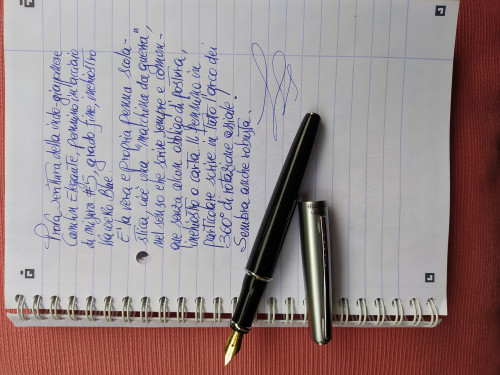 Prova scrittura della indo-giapponese
Camlin Elegante, pennino in acciaio
di misura #5, grado fine, inchiostro
Blue.
E' la vera e propria penna scola-
stica, cioè una "macchina da guerra",
nel senso che scrive sempre e comun-
que senza alcun obbligo di postura,
inchiostro o carta. Il pennino in
particolare scrive in tutto l'arco dei
360° di rotazione assiale!
Sembra anche robusta.